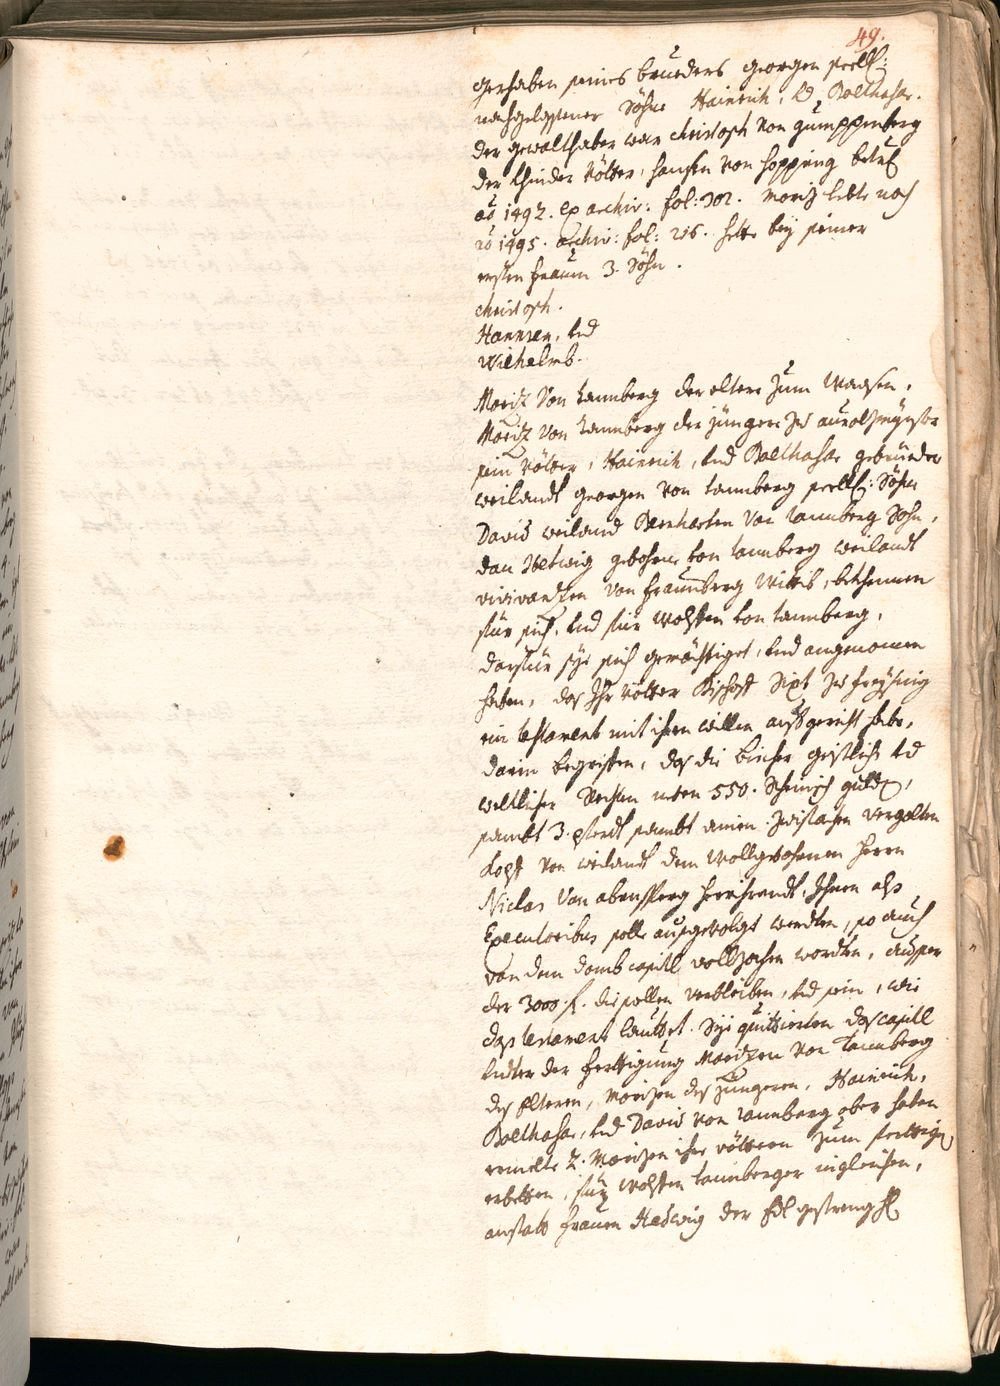 49.
gerhaben seines brueders georgen seell:
nachgelassener Söhne Hainrich, vd Balthasar.
der gewalthaber war christoph von gumppenberg
der khinder vötter, hansen von hopping betrf
ao 1492. ex archiv: fol: 302. Moriz lebte noch
ao 1495. archiv: fol: 216. hette bey seiner
ersten frauen 3. Söhn.
christoph.
Hannsen, vnd
Wilhelmb.
Moriz Von tannberg der eltere zum Wagsen,
Moritz von tannberg der jüngere zu aurolzmynster
sein vötter, Hainrich, vnd Balthasar gebrüeder
weilandt georgen von tannberg seell: Söhn
David weiland Bernharten Von tannberg Sohn,
dan Hedwig gebohrne von tannberg weilandt
vivianzten von fraunberg Wittib, bekhennen
für sich, vnd für Wolffen von tannberg,
darfür sye sich gemächtiget, vnd angenomen
haben, das Ihr vötter Bischoff Sixt zu freysing
ein testament mit ihren willen aufgericht habe,
darin begriffen, das die biecher geistlich vd
weltlicher Rechten neben 550. Rheinisch guld,
sambt 3. pferdt sambt ainen zwifachen vergolten
Kopf von weilandt dem Wollgebohrnen herrn
Niclas Von abensperg herrihrendt, Ihnen als
Executoribus solle ausgevolgt werdten, so auch
von dem dombcapitl vollzochen wordten, ausser
der 3000. f. die sollen verbleiben, vnd sein, wie
das testament lauttet. Sye quittierten das capitl
vndter der ferttigung Morizen von tannberg
des Elteren, Morizen des Jüngeren, Hainrich,
Balthasar, vnd David von tannberg aber haben
ermelte 2. Morizen ihre vöttern zum ferttigen
erbetten, für Wolffen tannberger ingleichen,
anstatt frauen Hedwig der Edl gestreng H.